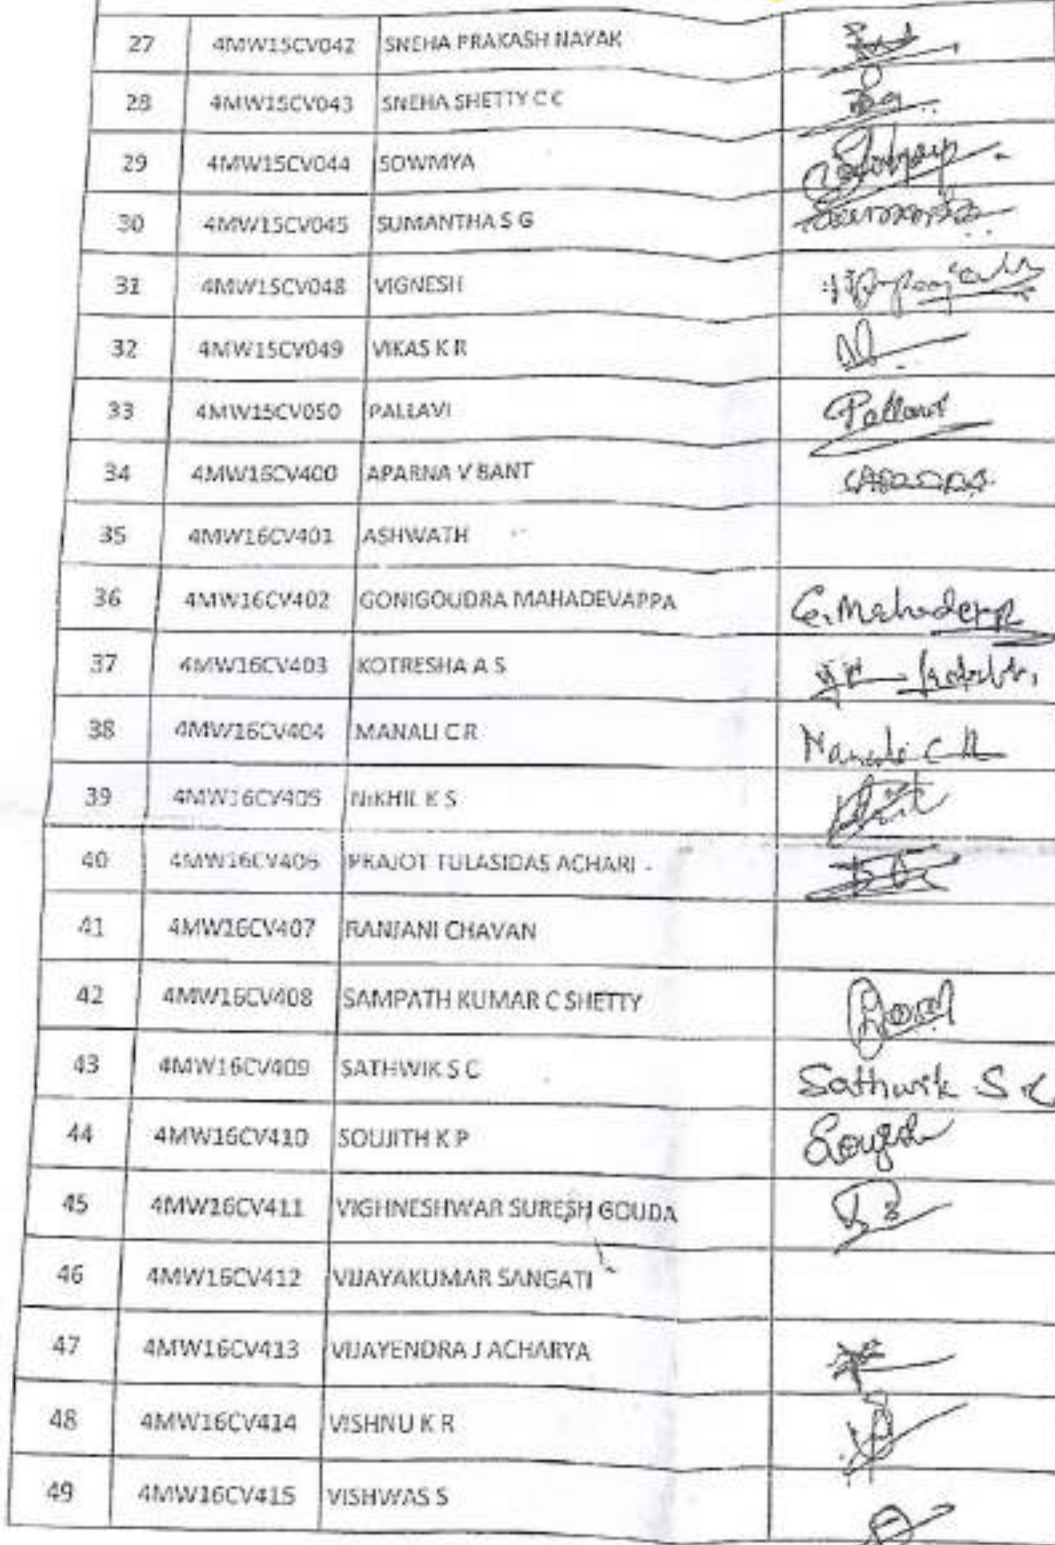 27 4MW15CV042 SNEHA PRAKASH NAYAK
28 4MW15CV043 SNEHA SHETTY C C
29 4MW15CV044 SOWMYA
30 4MW15CV045 SUMANTHA S G
31 4MW15CV048 VIGNESH
32 4MW15CV049 VIKAS K R
33 4MW15CV050 PALLAVI Pallavi
34 4MW16CV400 APARNA V BANT
35 4MW16CV401 ASHWATH
36 4MW16CV402 GONIGOUDRA MAHADEVAPPA G.Mahadevappa
37 4MW16CV403 KOTRESHA A S
38 4MW16CV404 MANALI C R Manali C R
39 4MW16CV405 NIKHIL K S
40 4MW16CV406 PRAJOT TULASIDAS ACHARI
41 4MW16CV407 RANJANI CHAVAN
42 4MW16CV408 SAMPATH KUMAR C SHETTY
43 4MW16CV409 SATHWIK S C Sathwik S C
44 4MW16CV410 SOUJITH K P
45 4MW16CV411 VIGHNESHWAR SURESH GOUDA
46 4MW16CV412 VIJAYAKUMAR SANGATI
47 4MW16CV413 VIJAYENDRA J ACHARYA
48 4MW16CV414 VISHNU K R
49 4MW16CV415 VISHWAS S